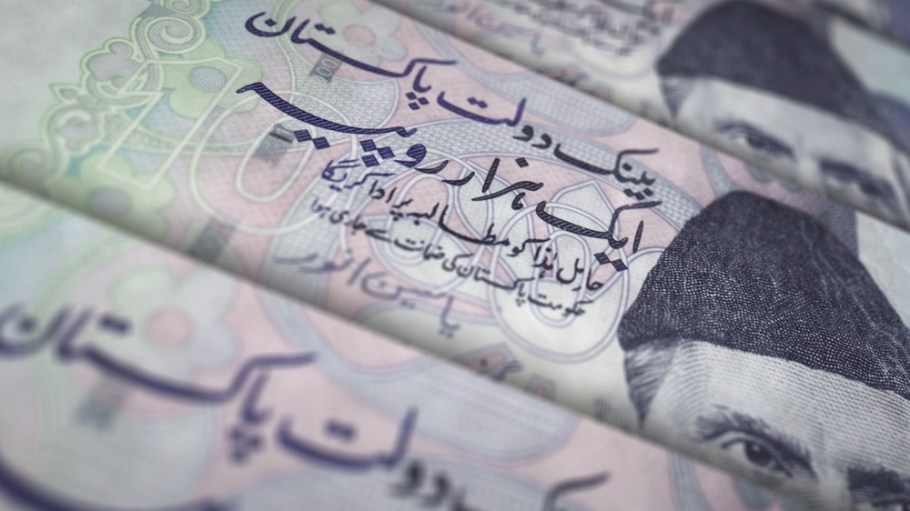 بینک دولت پاکستان
ایک ہزار روپیہ
حامل ہٰذا کو مطالبہ پر ادا کریگا
حکومت پاکستان کی ضمانت سے جاری ہوا
یاسین انور
دولت پاکستان